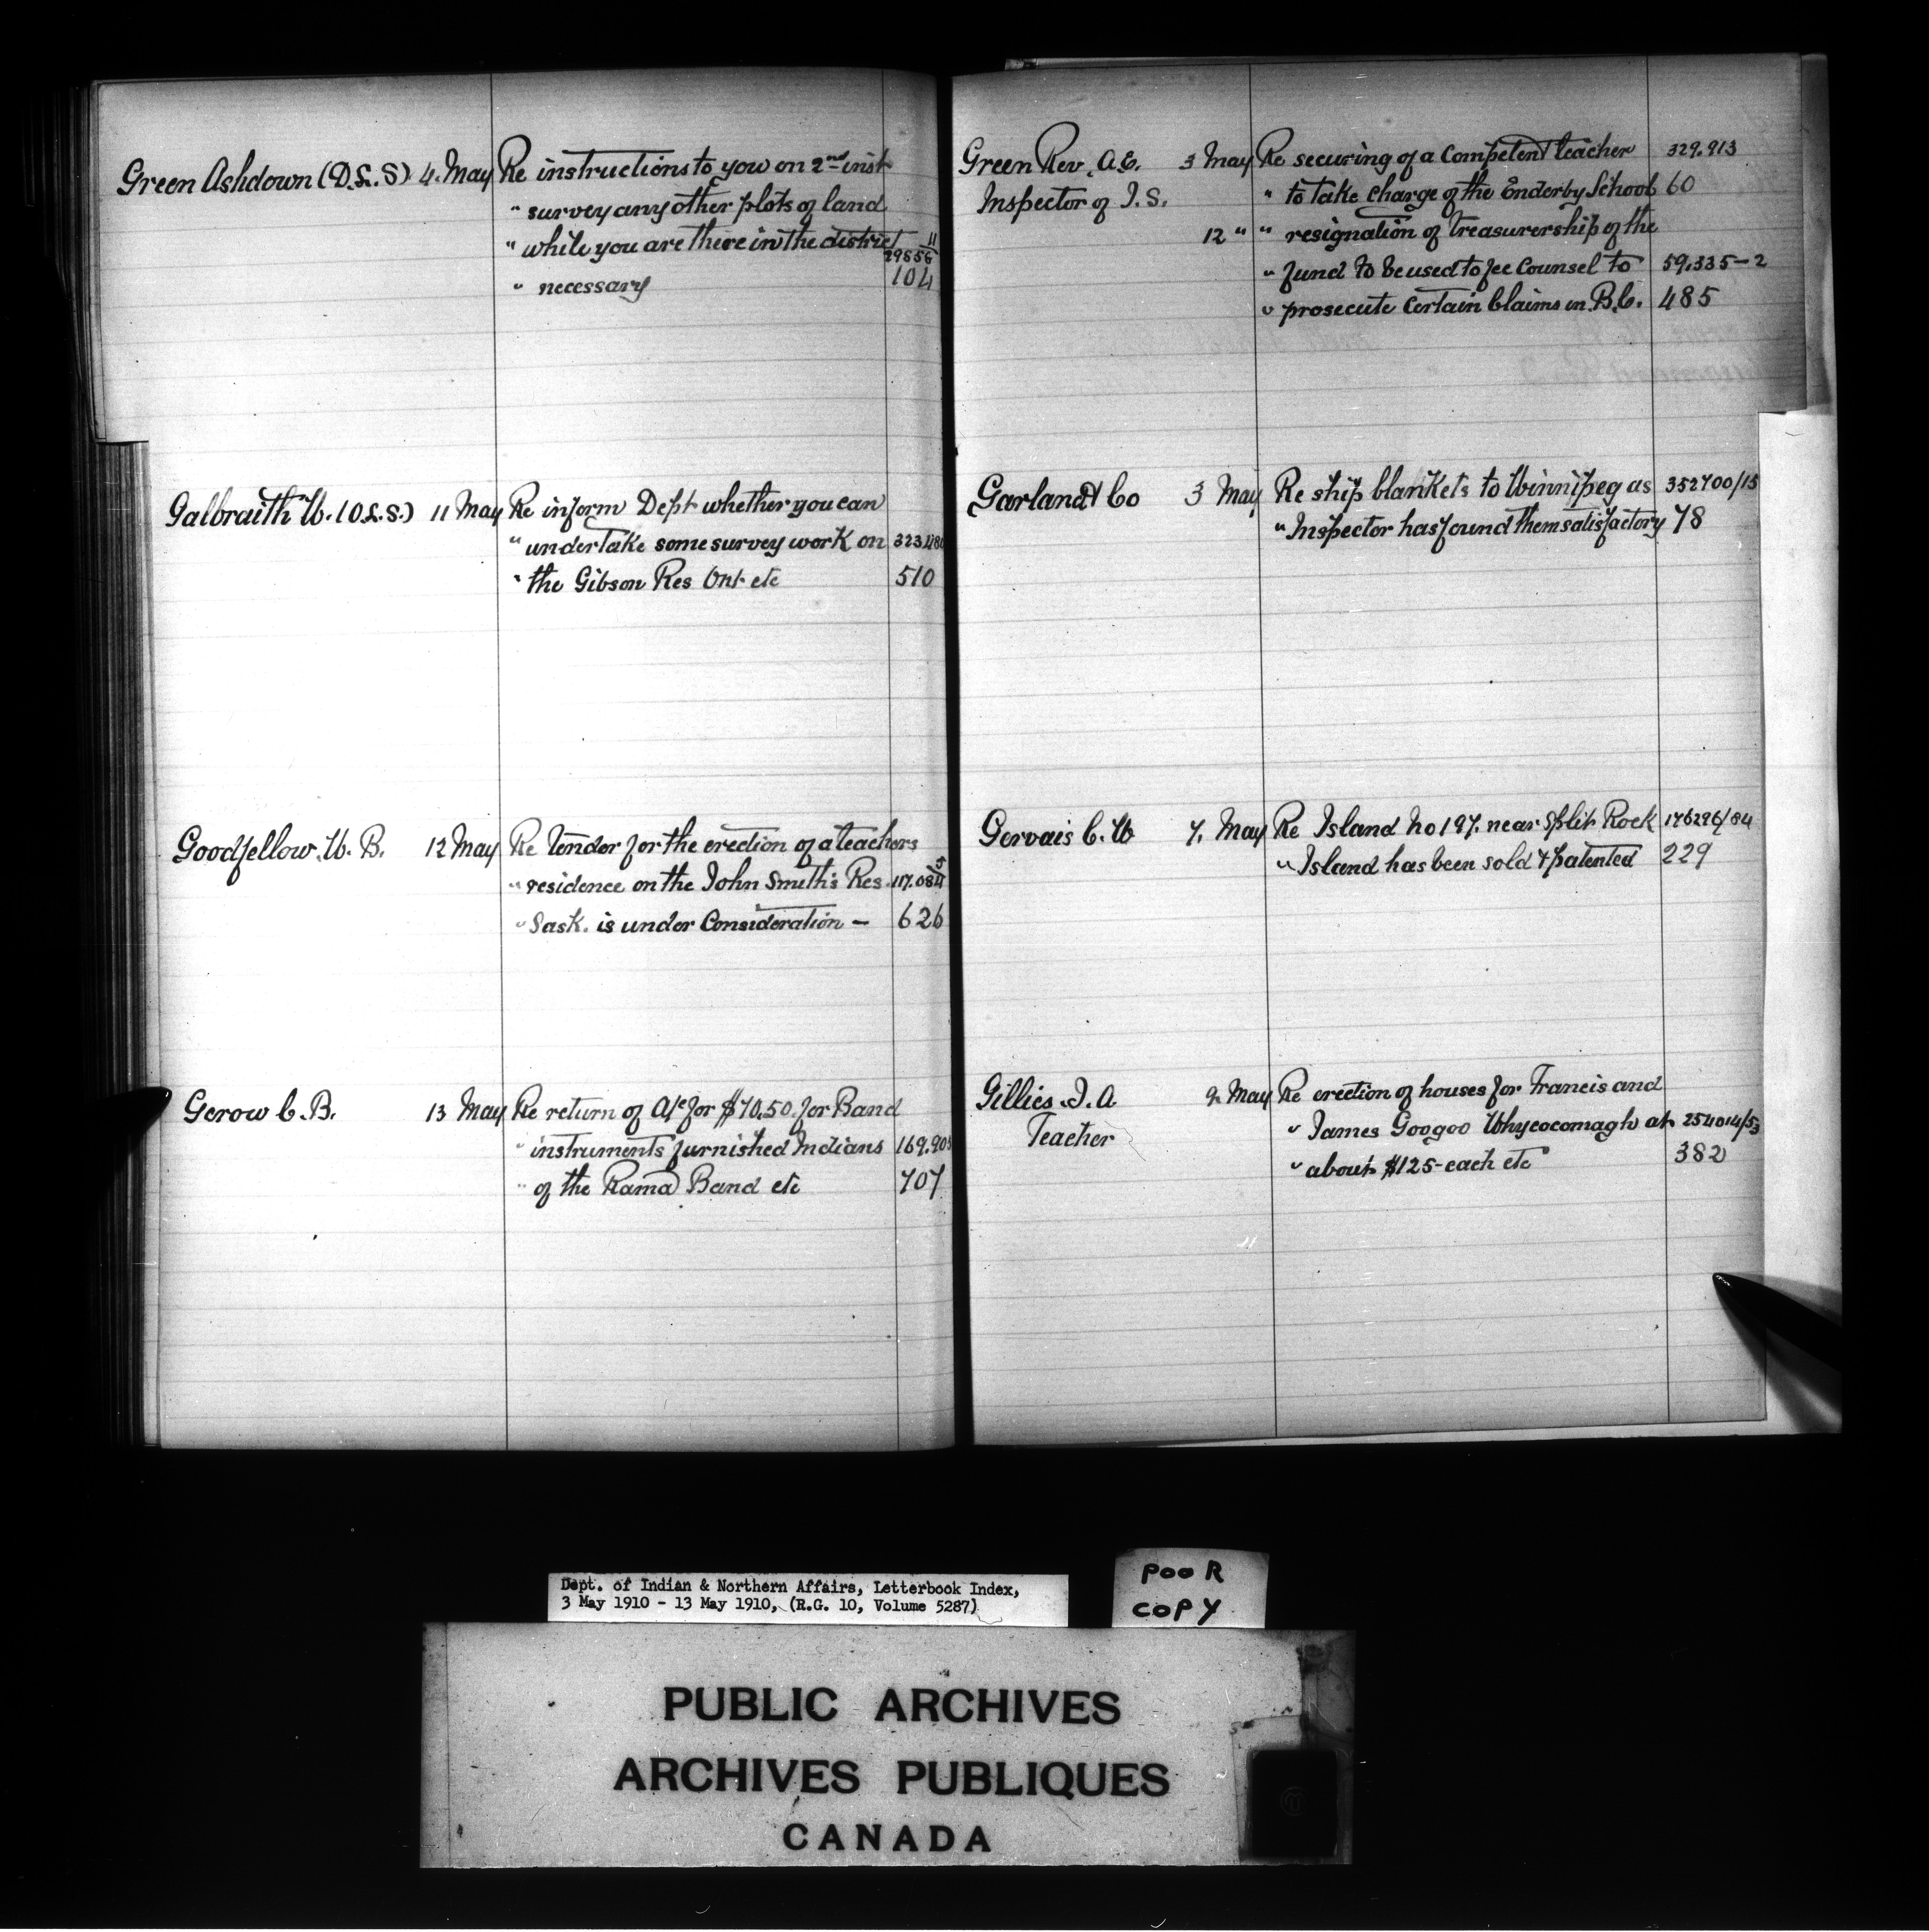 Green Ashdown (D.L.S) 4. May Re instructions to you on 2nd inst
" survey any other plots of land
" while you are there in the district
" necessary 104
Galbraith W. (O.L.S.) 11 May Re inform Dept whether you can
" undertake some survey work on
" the Gibson Res Ont etc 510
Goodfellow. W. B. 12 May Re Tender for the erection of a teachers
" residence on the John Smith's Res
" Sask. is under Consideration — 626
Gerow C. B. 13 May Re return of A/c for $70.50. for Band
" instruments furnished Indians
" of the Rama Band etc 707
Green Rev. A.E. 3 May Re securing of a Competent teacher 329.913
Inspector of I.S. " to take charge of the Enderby School 60
12 " " resignation of Treasurership of the
" fund to be used to fee Counsel to 59.335-2
" prosecute certain Claims in B.C. 485
Garland & Co 3 May Re ship blankets to Winnipeg as 352700/15
" Inspector has found them satisfactory 78
Gervais C. W 7. May Re Island No 197. near Split Rock 176296/84
" Island has been sold & patented 229
Gillies. J. A May Re erection of houses for Francis and
Teacher " James Googoo Whycocomagh at 254014/53
" about $125- each etc 382
Dept. of Indian & Northern Affairs, Letterbook Index,
3 May 1910 - 13 May 1910, (R.G. 10, Volume 5287)
POOR
COPY
PUBLIC ARCHIVES
ARCHIVES PUBLIQUES
CANADA